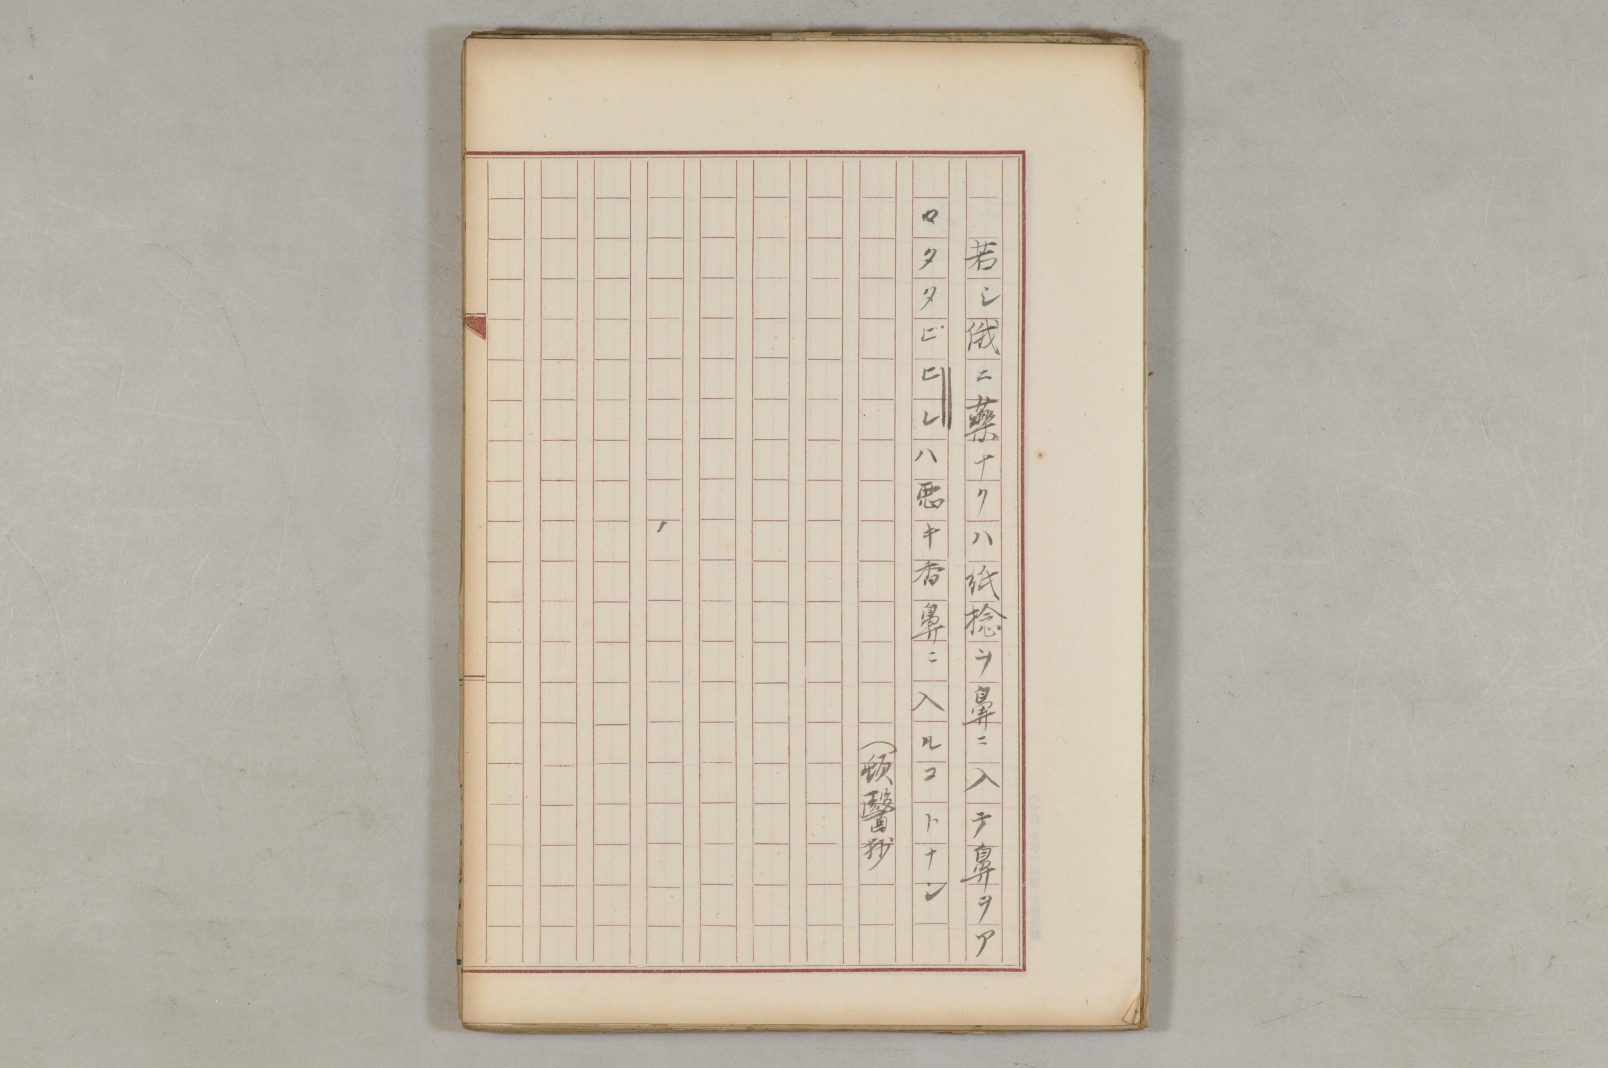 若シ俄ニ藥ナクハ紙捻ヲ鼻ニ入テ鼻ヲア
ロタタビヒレハ悪キ香鼻ニ入ルコトナシ
（頓醫抄